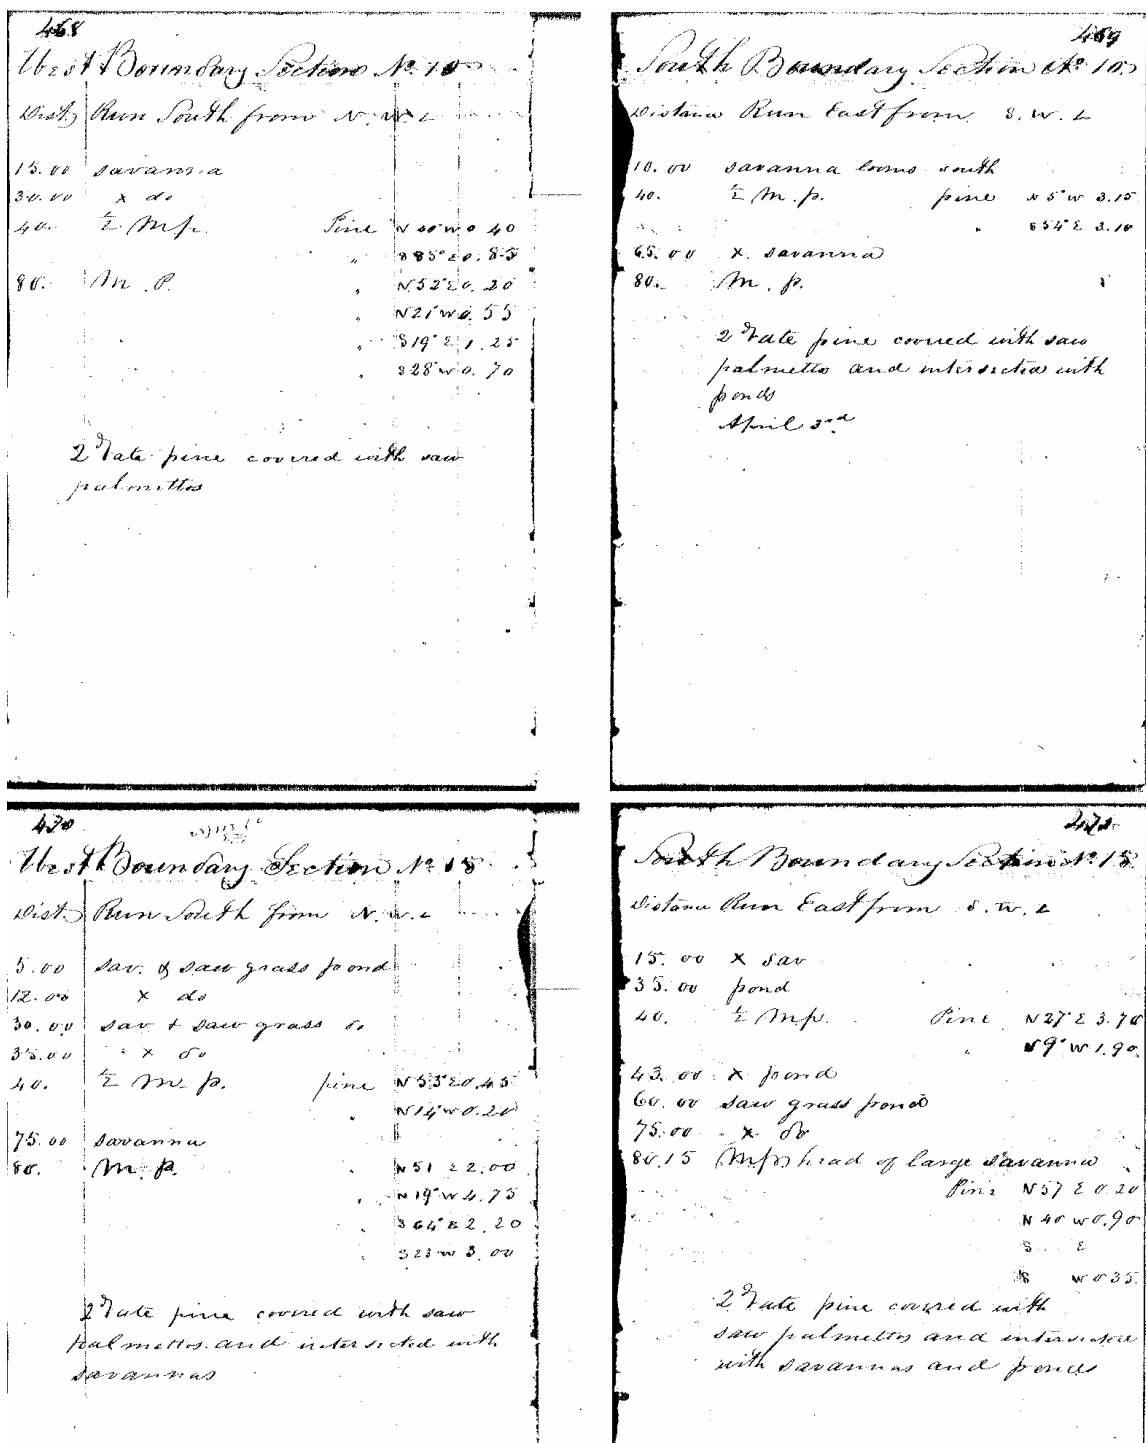 468
West Boundary Section No. 10
Dist. Run South from N. W. C
15.00 savanna
30.00 x do
40. ½ M p. Pine N 40 W 0 40
" S 85° E 0. 85
80. M. P. " N 52° E 0. 20
" N 21° W 0. 55
" S 19° E 1. 25
" S 28° W 0. 70
2d rate pine covered with saw
palmettos
469
South Boundary Section No. 10
Distance Run East from S. W. C
10. 00 savanna south
40. ½ M. p. pine N 5° W 3.15
" S 54° E 3.10
65. 00 x. savanna
80. M. p.
2d rate pine covered with saw
palmetto and intersected with
ponds
April 3rd
470
West Boundary Section No. 15
Dist. Run South from N. W. C
5.00 sav. & saw grass pond
12.00 x do
30.00 sav & saw grass do
35.00 x do
40. ½ M. p. pine N 53° E 0.45
" N 14° W 0.20
75.00 savanna
80. M. p. " N 51 E 2.00
" N 19° W 4.75
" S 64° E 2. 20
" S 23 W 3. 00
2d rate pine covered with saw
palmettos and intersected with
savannas
471
South Boundary Section No. 15
Distance Run East from S. W. C
15. 00 x sav
35. 00 pond
40. ½ M p. Pine N 27° E 3.70
" N 9° W 1.90
43. 00 x pond
60. 00 saw grass pond
75.00 x do
80.15 M p. head of large savanna
Pine N 57 E 0.20
N 40 W 0.90
S E
S W 0 35
2d rate pine covered with
saw palmettos and intersected
with savannas and ponds